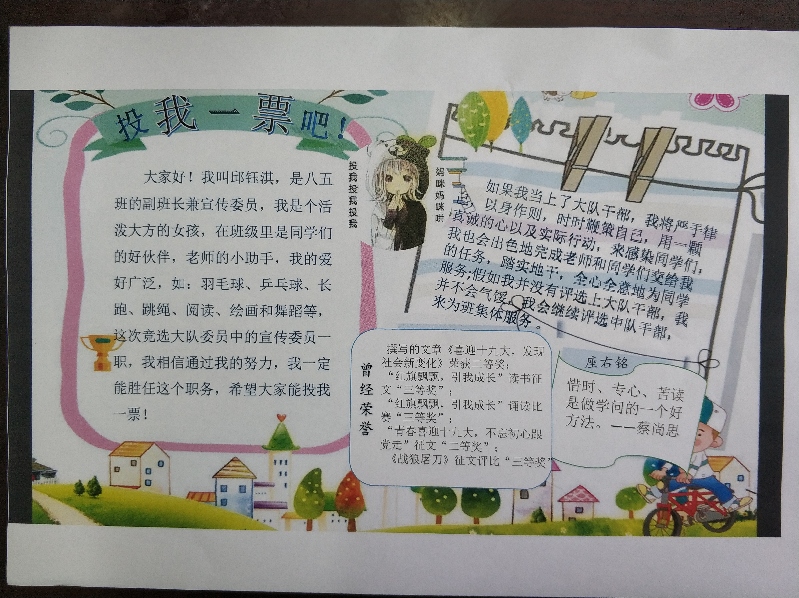 投我一票吧！
大家好！我叫邱钰淇，是八五
班的副班长兼宣传委员，我是个活
泼大方的女孩，在班级里是同学们
的好伙伴，老师的小助手，我的爱
好广泛，如：羽毛球、乒乓球、长
跑、跳绳、阅读、绘画和舞蹈等，
这次竞选大队委员中的宣传委员一
职，我相信通过我的努力，我一定
能胜任这个职务，希望大家能投我
一票！
投我投我投我
妈咪妈咪哄
如果我当上了大队干部，我将严于律
己，以身作则，时时鞭策自己，用一颗
真诚的心以及实际行动，来感染同学们，
我也会出色地完成老师和同学们交给我
的任务，踏实地干，全心全意地为同学
服务;假如我并没有评选上大队干部，我
并不会气馁，我会继续评选中队干部，
来为班集体服务。
曾经荣誉
撰写的文章《喜迎十九大，发现
社会新变化》荣获二等奖；
“红旗飘飘，引我成长”读书征
文“三等奖”；
“红旗飘飘，引我成长”诵读比
赛“三等奖”；
“青春喜迎十九大，不忘初心跟
党走”征文“二等奖”；
《战狼屠万》征文评比“三等奖”
座右铭
惜时、专心、苦读
是做学问的一个好
方法。——蔡尚思